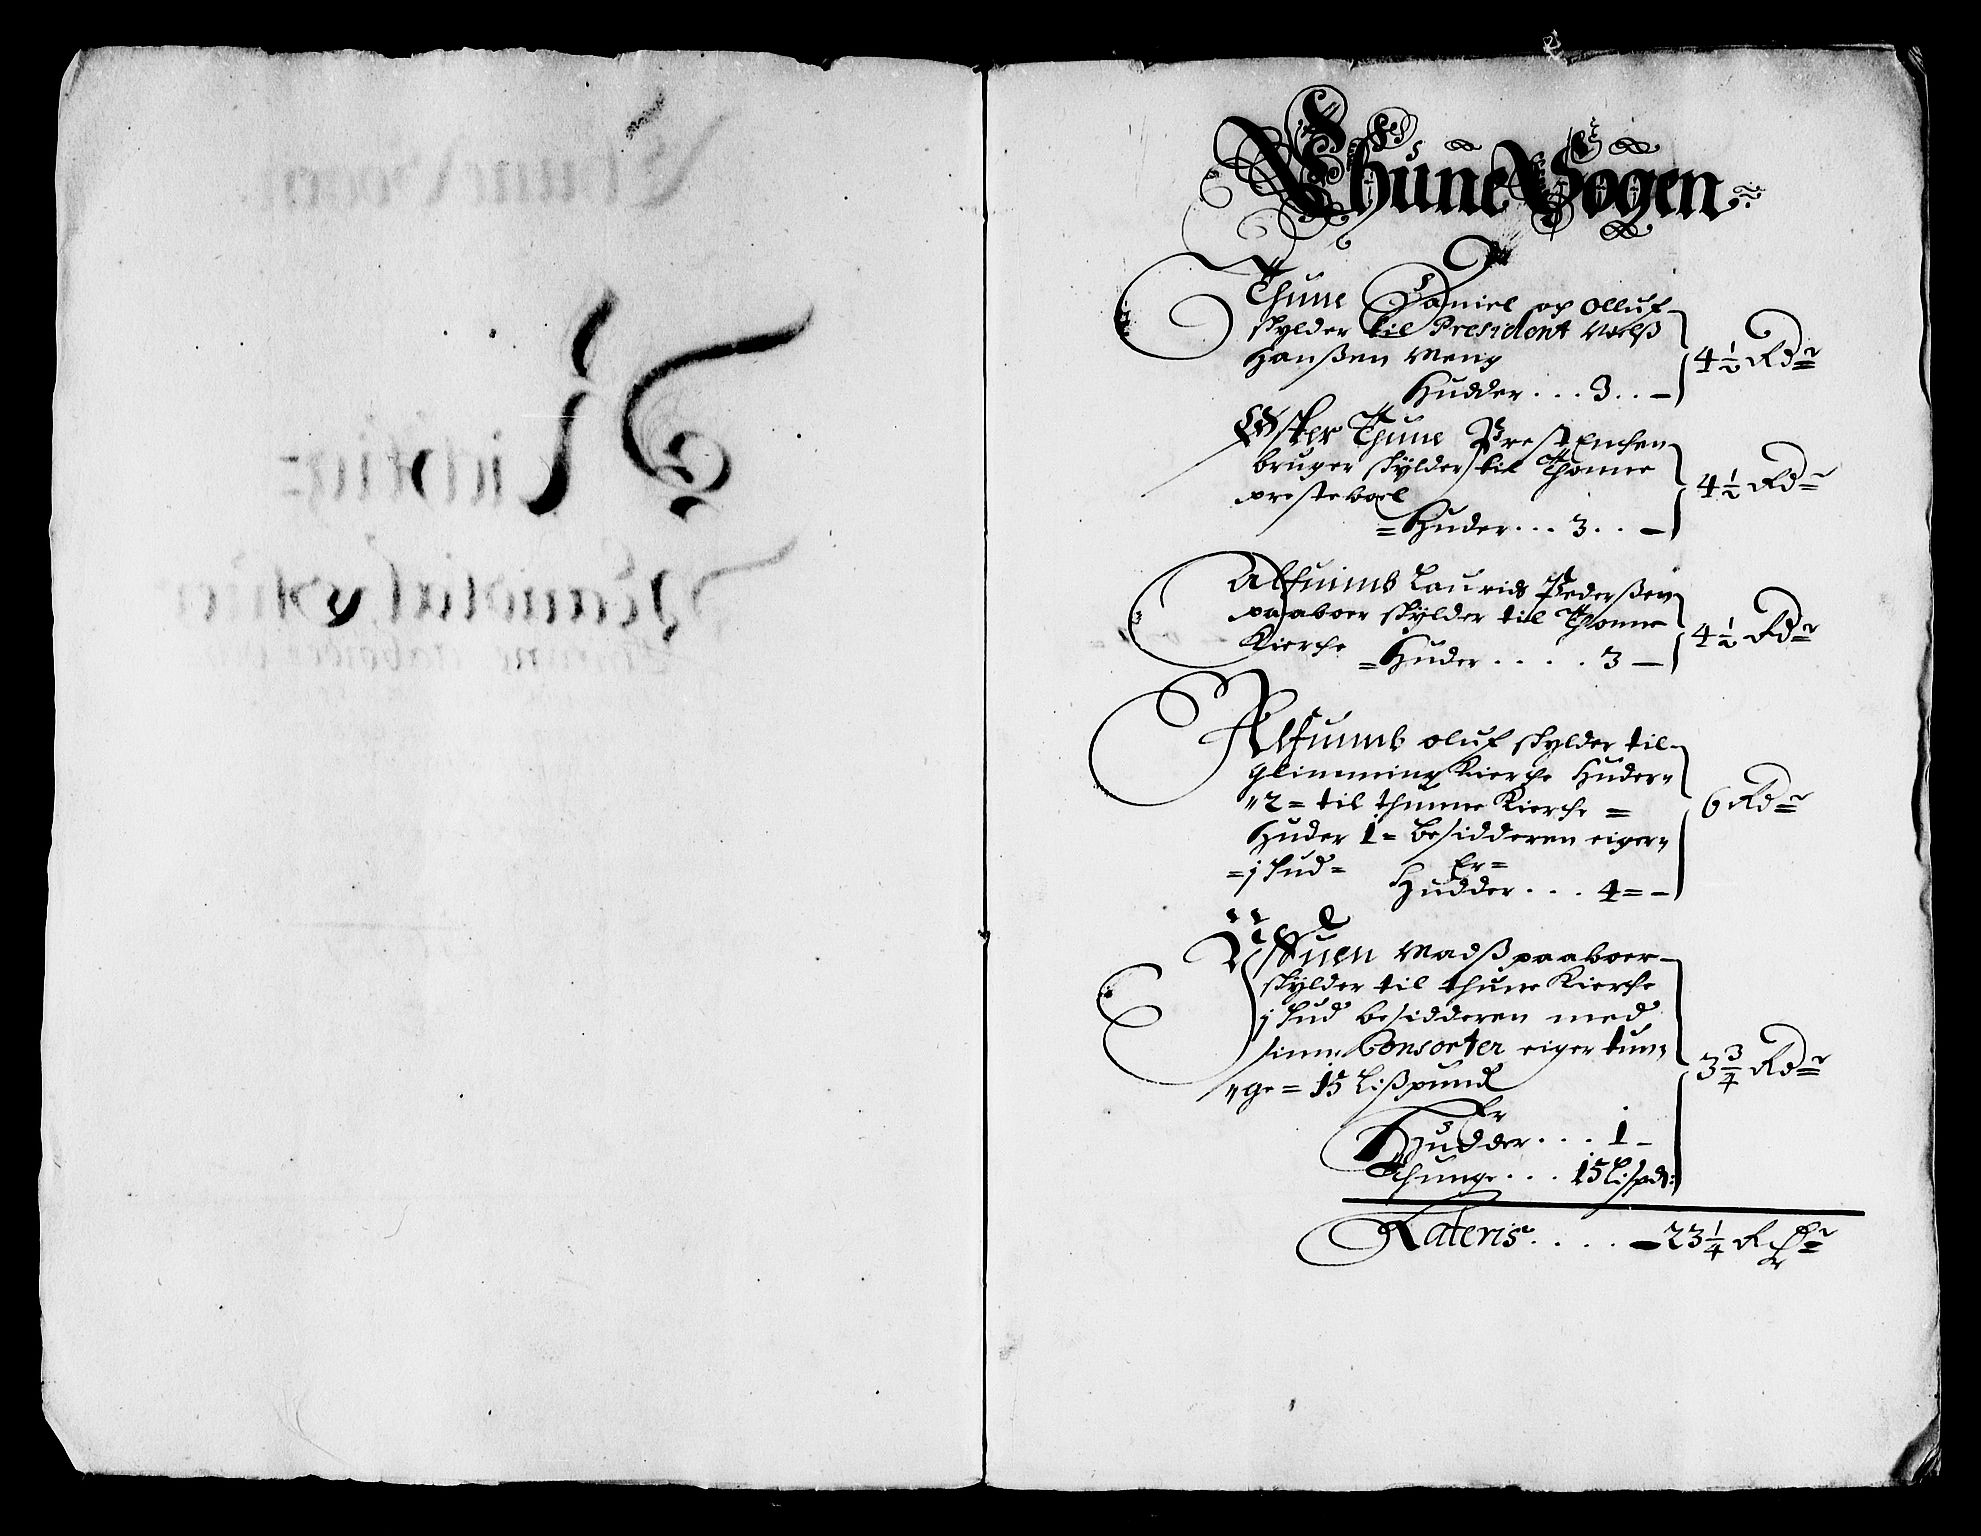 Thune Sogen
Thune Daniel og Olluf
skylder til President Nielß
Hanßen Meng
Hudder . . . 3 . . — 4½ Rdr
Thune Prest Enchen
bruger skylder til Thonne
presteboel
= Huder . . . 3 . . — 4½ Rdr
Alfuimb Laurids Pederßen
paaboer skylder til Thonne
Kierche = Huder . . . . . 3 — 4½ Rdr
Alfuimb oluf skylder til
glimming Kierche Huder „
„ 2 = til thunne Kierche =
Huder 1 = besidderen eiger „
= j hud = Er =
Hudder . . . 4 = — 6 Rdr
Madß paaboer
skylder til thune Kierche
j hud besidderen med
sinne Consorter eiger tun „
„ ge = 15 Lißpund
Er
Hudder . . . 1 — 3¾ Rdr
Thunge . . . 15 Lispd:
Rateris . . . . — 23¼ R